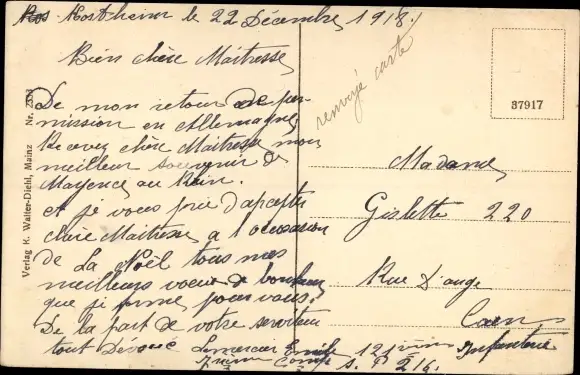 Kostheim le 22 Décembre 1918.
Bien chère Maitresse
De mon retour de per-
mission en Allemagne,
Recevez chère Maitresse mon
meilleur souvenir de
Mayence au Rhin.
et je vous prie d'accepter
chère Maitresse a l'occassion
de La Noël tous mes
meilleurs voeux de bonheur
que je forme pour vous.
De la part de votre serviteur
tout Dévoué Lemercier Emile 121
Infanterie
Comp S. P 216.
renvoyé carte
37917
Madame
Gislette 220
Rue d'auge
Caen
Verlag K. Walter-Diehl, Mainz Nr.